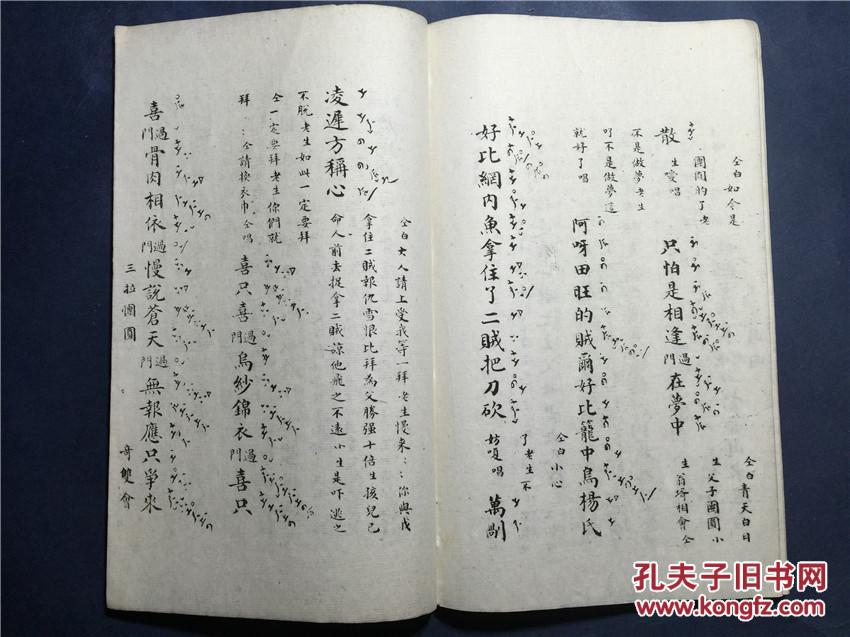 仝白如今是
團圓的了老
散
生愛唱
只怕是相逢過門在夢中
仝白青天白日
生父子團圓小
生翁壻相會仝
不是做夢老生
可不是做夢這
就好了唱
阿呀田旺的賊爾好比籠中鳥楊氏
仝白小心
好比網内魚拿住了二賊把刀砍
了老生不
妨嗄唱
萬剮
仝白大人請上受我等一拜老生慢來：：你與我
拿住二賊報仇雪恨比拜為父勝强十倍生孩兒已
凌遲方稱心
命人前去捉拿二賊諒他飛之不遠小生是吓逃之
不脫老生如此一定要拜
仝一定要拜老生你們就
拜：：仝請換衣巾仝唱
喜只喜過門烏紗錦衣過門喜只
喜過門骨肉相依過門慢說蒼天過門無報應只爭來
三拉團圓
奇雙會
孔夫子旧书网
www.kongfz.com